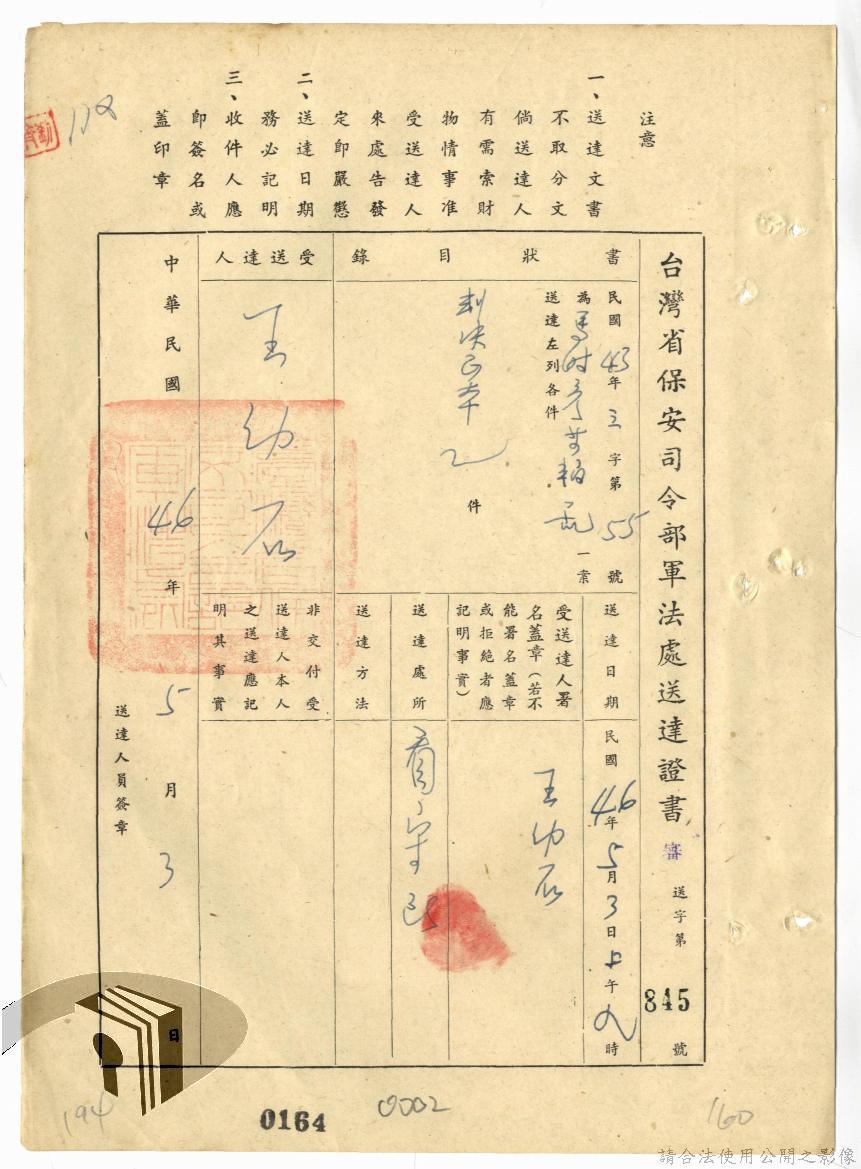 注意
一、送達文書
不取分文
倘送達人
有需索財
物情事准
受送達人
來處告發
定即嚴懲
二、送達日期
務必記明
三、收件人應
即簽名或
蓋印章
台灣省保安司令部軍法處送達證書 審 送字第 845 號
書狀目錄
民國43年三字第55號
為馬時彥等叛亂一案
送達左列各件
判決正本乙件
受送達人
王幼石
送達日期
民國46年5月3日上午九時
受送達人署
名蓋章(若不
能署名蓋章
或拒絕者應
記明事實)
王幼石
送達處所
看守所
送達方法
非交付受
送達人本人
之送達應記
明其事實
中華民國46年5月3日
送達人員簽章
0164
0002
194
160
請合法使用公開之影像